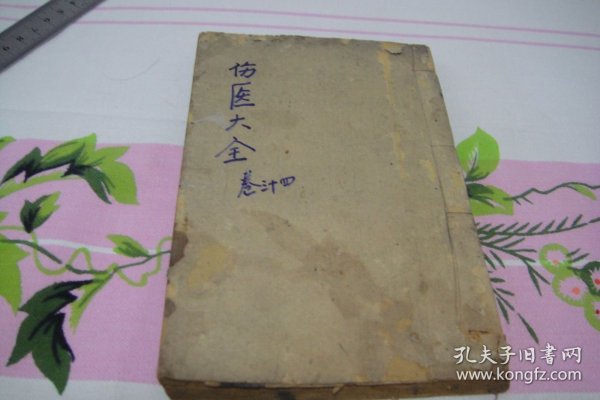 伤医大全
卷三十四
孔夫子旧书网
www.kongfz.com